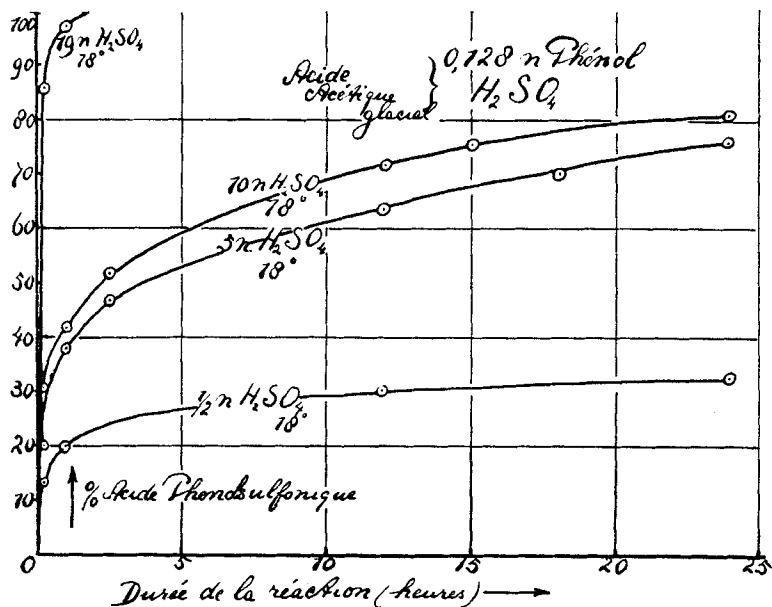 100
90
80
70
60
50
40
30
20
10
0
19n H₂SO₄
18°
Acide
Acétique
glacial
0,128 n Phénol
H₂SO₄
10n H₂SO₄
18°
5n H₂SO₄
18°
½n H₂SO₄
18°
% Acide Phénolsulfonique
5
10
15
20
25
Durée de la réaction (heures)